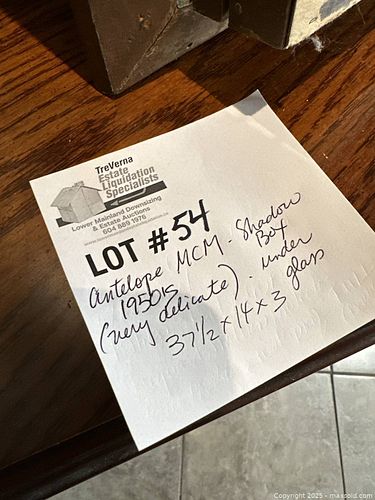 TreVerna
Estate
Liquidation
Specialists
Lower Mainland Downsizing
& Estate Auctions
604 889 1976
LOT # 54
Antelope MCM - Shadow
1950's Box
(very delicate). under
glass
37 1/2 x 14 x 3
Copyright 2025 - maxsold.com